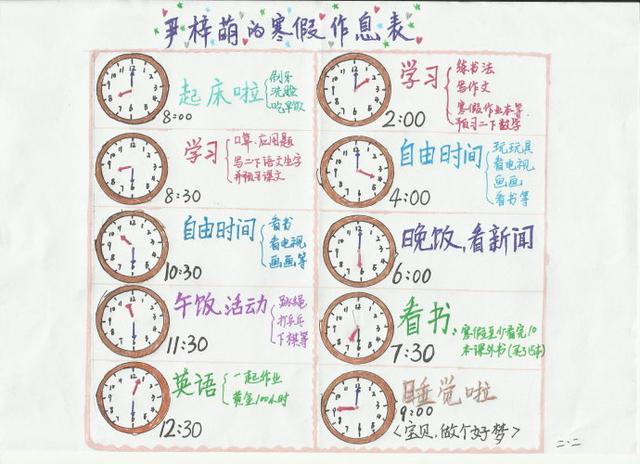 尹梓萌的寒假作息表
8:00
起床啦
刷牙
洗脸
吃早饭
8:30
学习
口算·应用题
写二下语文生字
并预习课文
10:30
自由时间
看书
看电视
画画等
11:30
午饭,活动
跳绳
打乒乓
下棋等
12:30
英语
一起作业
黄金100小时
2:00
学习
练书法
写作文
寒假作业本等
预习二下数学
4:00
自由时间
玩玩具
看电视
画画
看书等
6:00
晚饭,看新闻
7:30
看书:
寒假至少看完10
本课外书
9:00
睡觉啦
<宝贝,做个好梦>
二·二